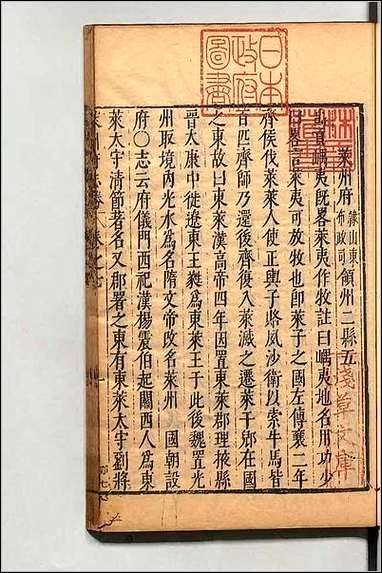 萊州府 隸山東布政司 領州二縣五
禹貢嵎夷既畧萊夷作牧註曰嵎夷地名用功少
曰畧言萊夷可放牧也卽萊子之國左傳襄二年
齊侯伐萊萊人使正輿子賂夙沙衛以索牛馬皆
百匹齊師乃還後齊復入萊滅之遷萊于郳在國
之東故曰東萊漢高帝四年因置東萊郡理掖縣
晉太康中徙遼東王蕤為東萊王于此後魏置光
州取境內光水為名隋文帝改名萊州　國朝設
府○志云府儀門西祀漢楊震伯起關西人為東
萊太守清節著名又郡署之東有東萊太守劉將
日本
政府
圖書
淺草文庫